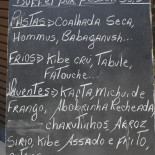 Buffet por Pessoa
Pastas => Coalhada Seca,
Hommus, Babaganush...
Frios => Kibe cru, Tabule,
Fatouche...
Quentes => Kafta, Michui de
Frango, Abobrinha Recheada,
charutinhos Arroz
Sirio, Kibe Assado e Frito,